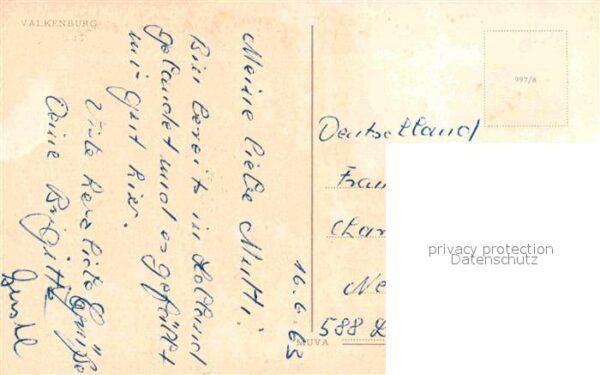 VALKENBURG
Meine liebe Mutti!
Bin bereits in Holland
gelandet und es gefällt
mir gut hier.
Viele herzliche Grüße
Deine Brigitte
16.6.63
MUVA
997/8
Deutschland
588
privacy protection
Datenschutz